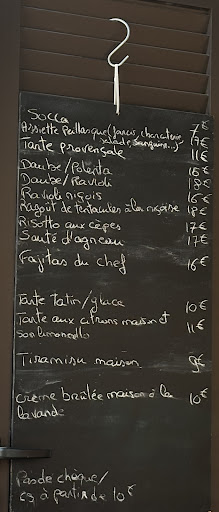 Socca 7€
Assiette Pallasque (farcis, charcuterie 17€
salade, beignets...)
Tarte provençale 11€
Daube/Polenta 16€
Daube/Ravioli 18€
Ravioli niçois 16€
Ragoût de pentoulles à la niçoise 18€
Risotto aux cèpes 17€
Sauté d'agneau 17€
Fajitas du chef 16€
Tarte tatin/glace 10€
Tarte aux citrons maison et 11€
son limoncello
Tiramisu maison 9€
crème brûlée maison à la 10€
lavande
Pas de chèque/
CB à partir de 10€